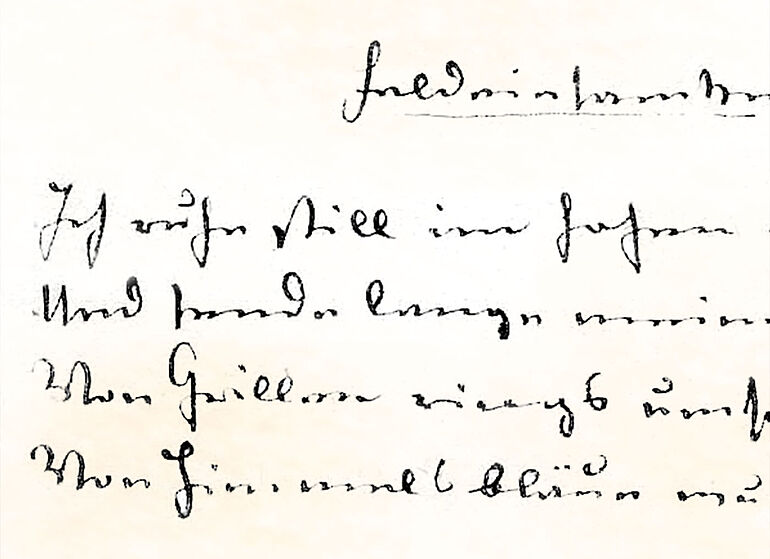 Feldeinsamkei
Ich ruhe still im hohen
Und sende lange meine
Von Grillen rings ums
Von Himmelsbläue wu